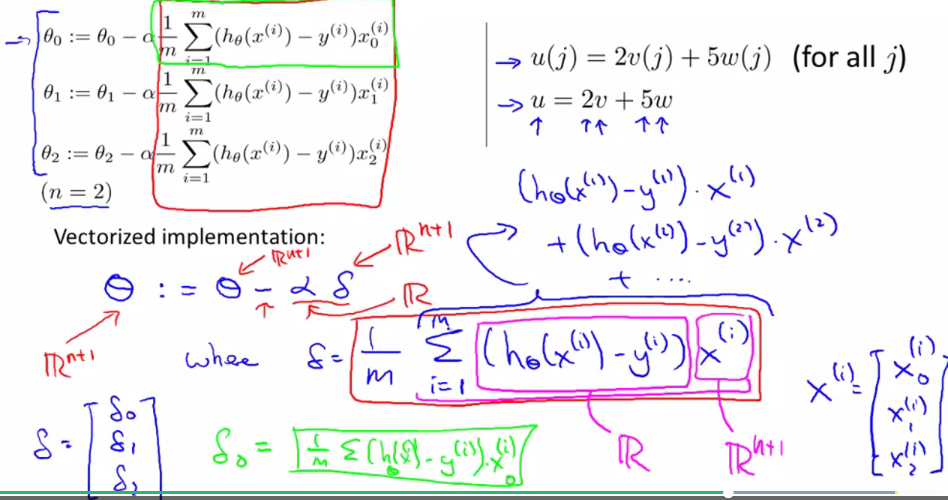 θ₀ := θ₀ − α 1/m ∑_{i=1}^{m} (h_θ(x^{(i)}) − y^{(i)})x₀^{(i)}
θ₁ := θ₁ − α 1/m ∑_{i=1}^{m} (h_θ(x^{(i)}) − y^{(i)})x₁^{(i)}
θ₂ := θ₂ − α 1/m ∑_{i=1}^{m} (h_θ(x^{(i)}) − y^{(i)})x₂^{(i)}
(n = 2)
→ u(j) = 2v(j) + 5w(j) (for all j)
→ u = 2v + 5w
(h_θ(x^{(1)}) − y^{(1)}) · x^{(1)}
+ (h_θ(x^{(2)}) − y^{(2)}) · x^{(2)}
+ ....
Vectorized implementation:
ℝ^{n+1}
ℝ^{n+1}
θ := θ − α δ
ℝ
ℝ^{n+1}
where δ = 1/m ∑_{i=1}^{m} (h_θ(x^{(i)}) − y^{(i)}) x^{(i)}
ℝ
ℝ^{n+1}
x^{(i)} = [x₀^{(i)}
x₁^{(i)}
x₂^{(i)}]
δ = [δ₀
δ₁
δ₂]
δ₀ = 1/m ∑ (h_θ(x^{(i)}) − y^{(i)}) · x₀^{(i)}